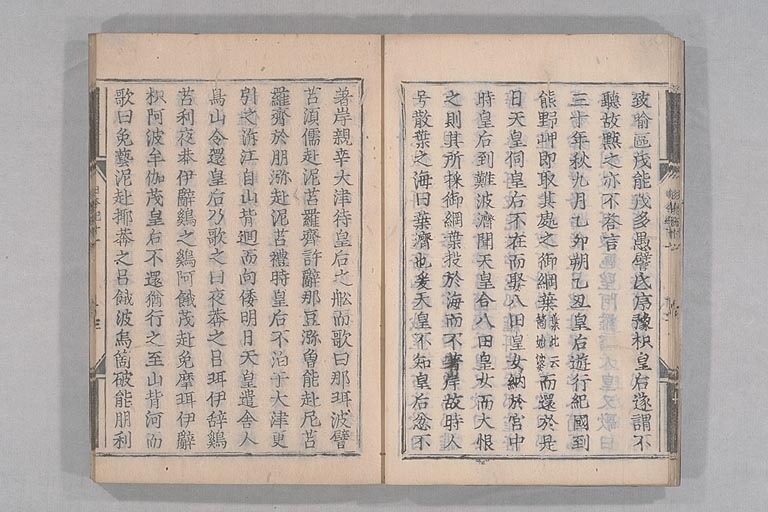 致喩區茂能茂多愚譬氐序豫枳皇后遂謂不
聽故默之亦不答言
三十年秋九月乙卯朔乙丑皇后遊行紀國到
熊野岬即取其處之御綱葉葉此云箇始婆而還於是
日天皇伺皇后不在而娶八田皇女納於宮中
時皇后到難波濟聞天皇合八田皇女而大恨
之則其所採御綱葉投於海而不著岸故時人
号散葉之海曰葉濟也爰天皇不知皇后忿不
著岸親幸大津待皇后之舩而歌曰那珥波譬
苔須儒赴泥苔羅齊許辭那豆瀰曽能赴尼苔
羅齊於朋瀰赴泥苔禮時皇后不泊于大津更
引之泝江自山背廻而向倭明日天皇遣舎人
鳥山令還皇后乃歌之曰夜莽之呂珥伊辭鷄
苔利夜莽伊辭鷄之鷄阿餓茂赴免摩珥伊辭
枳阿波牟伽茂皇后不還猶行之至山背河而
歌曰免藝泥赴揶莽之呂餓波烏箇破能朋利